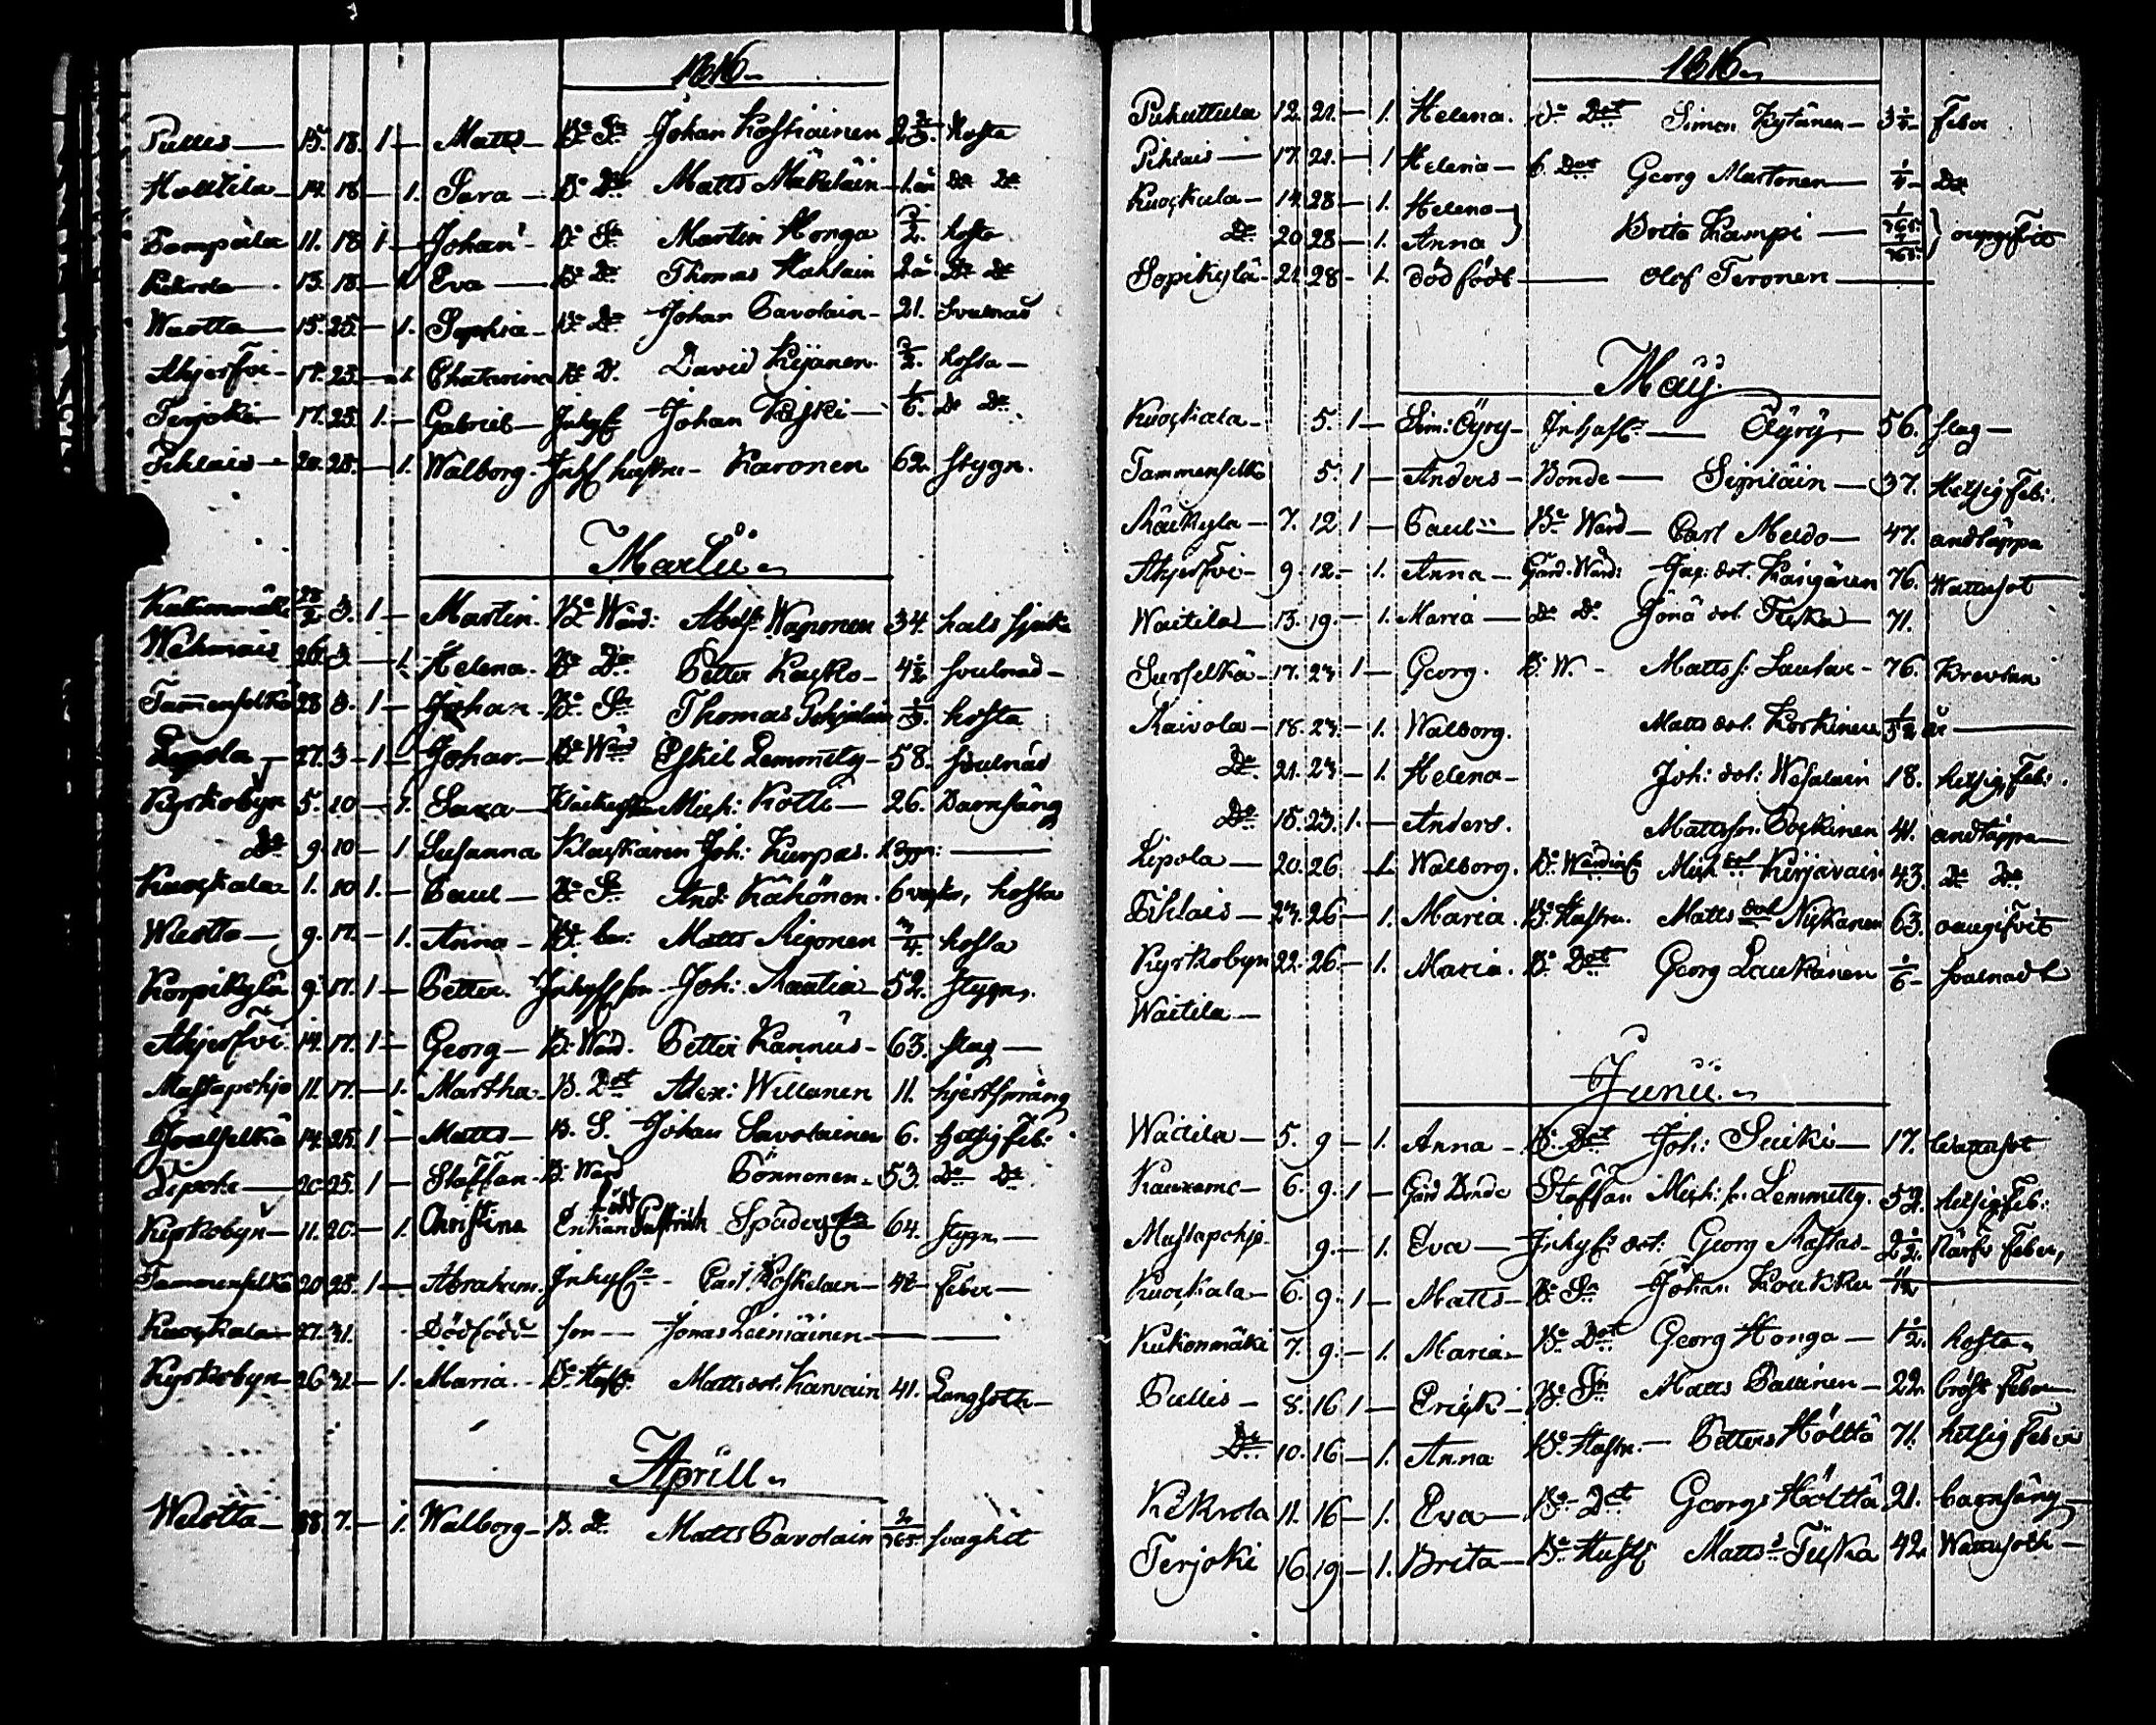 1816
Pullis — 15. 18. 1 — Matts — Bo Sn Johan Koskiainen hosta
Holttila — 14. 18 — 1. Sara — Bo Dr Matts Mäkeläin — 1. år Do Do
Pampala 11. 18 1 — Johan — Bo Sn Martin Honga hosta
Kekrola — 13. 18. — 1 Eva — Bo Dr Thomas Hahlain 2 år Do Do
Wuotta — 15. 25. — 1. Sophia — Bo Dr Johan Pavolain — 21. svulnad
Ahjerfvi — 17. 25. — 1 Chatarina Bo D. David Kijanen. hosta —
Terjoki — 17. 25. 1. — Gabriel — Inhys Johan Kiski — 1/6. Do Do
Pihlais — 20. 25. — 1. Walborg — Inhs hustru — Karonen 62. stygn.
Martii
Kukonmäki 28/2. 3. 1 — Martin. Bo Wärd: Abelss. Waponen 34. hals sjuka
Wehmais 26. 3. — 1. Helena. Bo Dr Petter Kaupko — 4 1/2 svulnad —
Tammenselkä 28 3. 1 — Johan. Bo Sn Thomas Pohjalain hosta
Lipola — 27. 3 — 1 — Johan — Bo Wärd Eskil Lemmety — 58. svulnad
Kyrkobyn 5. 10 — 1. Sara — Mich: Kotti — 26. Barnsäng
Do 9. 10 — 1. Susanna Klockaren Joh: Kurpas. 1 dygn: —
Kuockala 1. 10 1. — Paul — Bo Sn And: Kähönen. 6 veckor, hosta
Wuotta — 9. 17. — 1. Anna — B. bar: Matts Rigonen 3/4. hosta
Korpikylä 9. 17. 1 — Petter. Inhyss son Joh: Rautia — 52. stygn.
Ahjerfvi. 14. 17. 1 — Georg — B. Wärd. Petter Kannus — 63. slag —
Mastapohja 11. 17. — 1. Martha. B. Dot Alex: Willanen 11. hjertsprång
Joutselkä 14. 25. 1 — Matts — B. S. Johan Savolainen 6. hetsig feb:
Lipola — 20. 25. 1 — Staffan. B. Wärd Pönnonen. 53. Do Do
Kyrkobyn — 11. 20. — 1. Christina Enkan född Spåders 64. stygn —
Tammenselkä 20. 25. 1 — Abraham. Inhyss — Carl Koskelain — 42 — feber —
Kuockala — 27. 31. Dödfödd son — Jonas Leiniäinen —
Kyrkobyn — 26. 31. — 1. Maria. Bo Hust. Matts dot. Karvain 41. Lungsoth —
Aprill
Wuotta — 28. 7. — 1. Walborg — B. D. Matts Pavolain 2/365. svaghet
1816
Puhuttula 12. 21. — 1. Helena. Bo Dot Simon Kytänen — 3 1/4 — feber
Pihlais — 17. 21. — 1 Helena — B. Dot Georg Martonen — 1/4 — Do
Kuockala — 14. 28 — 1. Helena —
Do 20 28 — 1. Anna Brita Kampi — 1/365. 7/365. oangifvit
Sopikylä — 21. 28 — 1. dödfödt — Olof Teronen —
Maij
Kuockala — 5. 1 — Sim: Öyry — Inhys — Öyry — 56. slag —
Tammenselkä 5. 1 — Anders — Bonde — Sipiläin — 37. Hetsig feb:
Räikylä — 7. 12 1 — Paul — Bo Wärd — Carl Meldo — 47. andtäppa
Ahjerfvi — 9. 12. — 1. Anna — Gård. Wärd: Jac: dot. Kaigären 76. Wattusot
Waitila — 13. 19. — 1. Maria — Do Do Jöns dot. Tuska — 71.
Surselkä — 17. 23. 1 — Georg. B. W. — Matts s: Laulax — 76. Kreftan
Raivola — 18. 23. — 1. Walborg. Matts dot. Korkinen år —
Do 21. 23. — 1. Helena — Joh: dot: Wesalain 18. hetsig feb:
Do 15. 23. 1. — Anders. Mattsson Pockinen 41. andtäppa —
Lipola — 20. 26. 1. Walborg. Bo Wärdin Mich. dot Kirjavain 43. Do Do
Pihlais — 23. 26 — 1. Maria. Bo Hustru. Matts dot Niskanen 63. oangifvit
Kyrkobyn 22. 26. — 1. Maria. B. Dot Georg Laukanen 1/6 — svalnadt
Waitila —
Junii
Waitila — 5. 9 — 1. Anna — Bo Dot Joh: Suiki — 17. Wattusot
6. 9. 1 — Gård Bonde Staffan Mich: s. Lemmetty. 52. hetsig feb:
Mastapohja 9. — 1. Eva — Inhys dot: Georg Rastas — 2 1/2. Närfv feber,
Kuockala — 6. 9. 1 — Matts — Bo Sn Johan Koukku —
Kukonmäki 7. 9. — 1. Maria — Bo Dot Georg Honga — 1 1/2. hosta
Pullis — 8. 16 1 — Erick — Bo Sn Matts Pallinen — 22. bröst feber —
Do 10. 16 — 1. Anna Bo Hustr. — Petters Hölttä 71. hetsig feber
Kekrola 11. 16 — 1. Eva — Bo Dot Georgs Hölttä 21. barnsäng —
Terjoki 16. 19 — 1. Brita — Bo Hust Matts Tuska 42. Wattusoth —